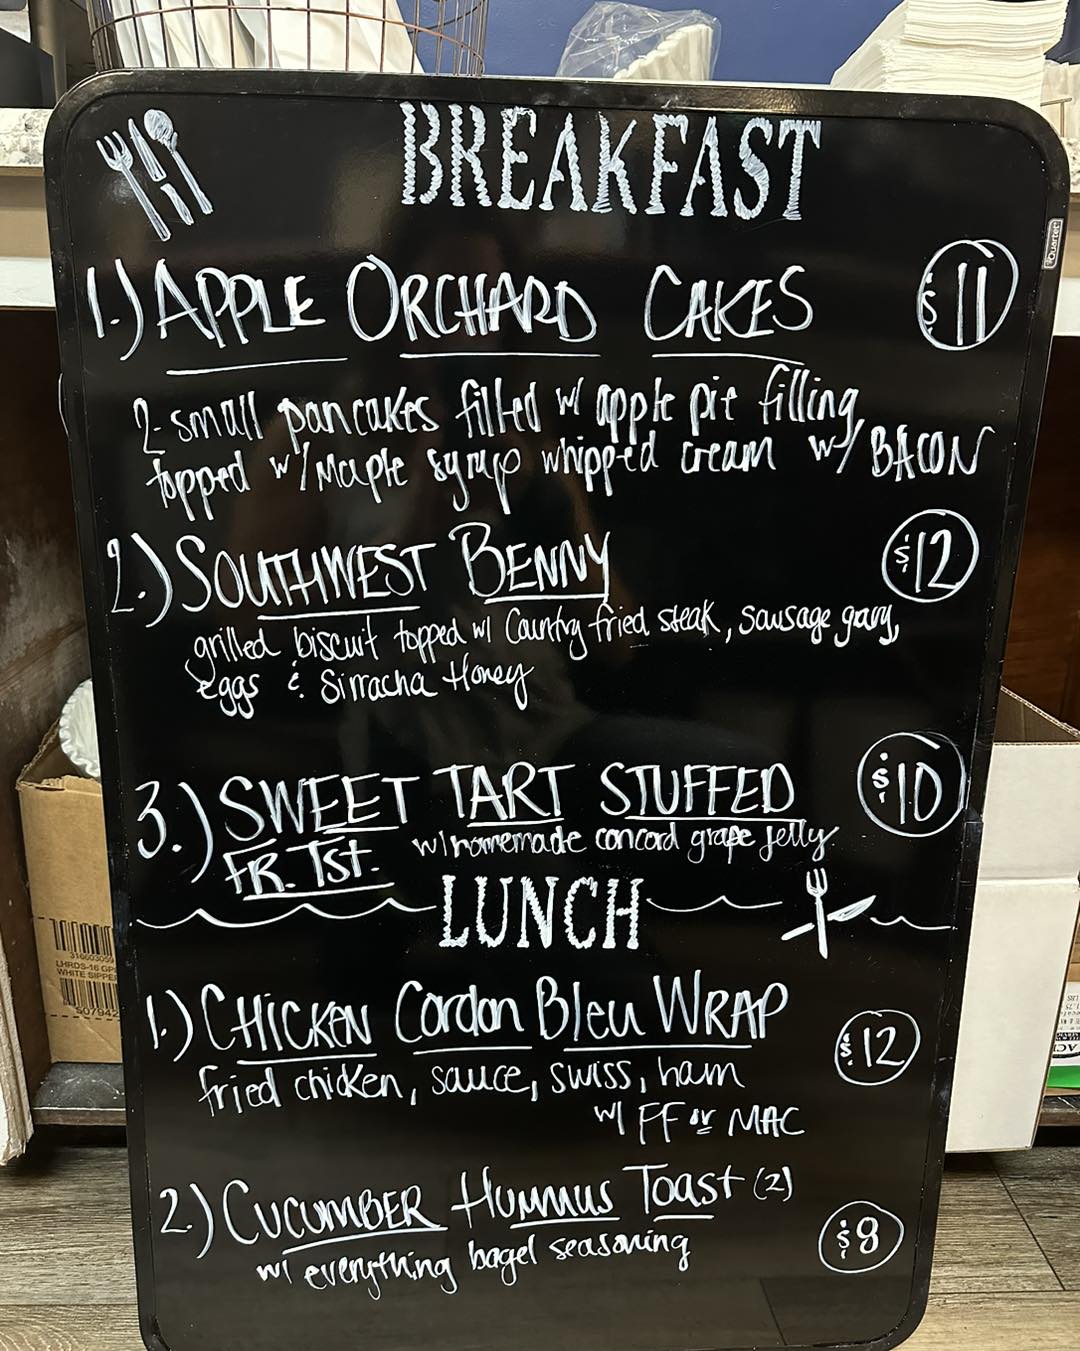 BREAKFAST
Quartet
1.) APPLE ORCHARD CAKES $11
2-small pancakes filled w/ apple pie filling
topped w/ Maple syrup whipped cream w/ BACON
2.) SOUTHWEST BENNY $12
grilled biscuit topped w/ Country fried steak, sausage gravy,
eggs & Sirracha Honey
3.) SWEET TART STUFFED $10
FR. TST. w/ homemade concord grape jelly
LUNCH
1.) CHICKEN Cordon Bleu WRAP $12
fried chicken, sauce, swiss, ham
w/ FF or MAC
2.) CUCUMBER HUMMUS TOAST (2) $8
w/ everything bagel seasoning
316603059
LHRDS-16
WHITE SIPPE
507942